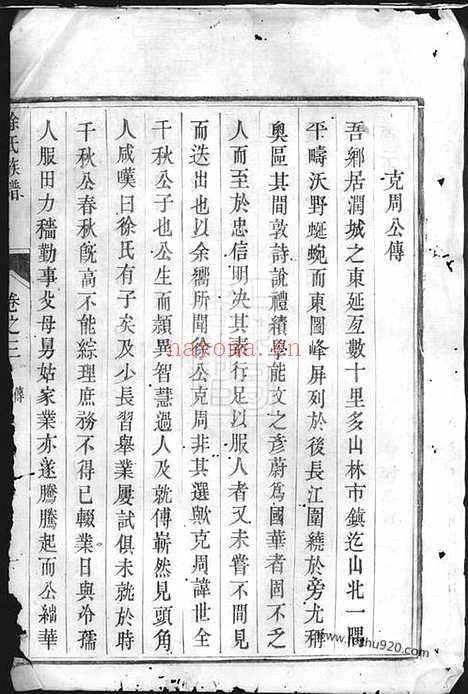 克周公傳
吾鄉居潤城之東延亙數十里多山林市鎮迄山北一隅
平疇沃野蜿蜿而東圌峰屏列於後長江圍繞於旁尤稱
奧區其間敦詩說禮績學能文之彥蔚爲國華者固不乏
人而至於忠信明决其素行足以服人者又未嘗不間見
而迭出也以余嚮所聞徐公克周非其選歟克周諱世全
千秋公子也公生而頴異智慧過人及就傅嶄然見頭角
人咸嘆曰徐氏有子矣及少長習舉業屢試俱未就於時
千秋公春秋旣高不能綜理庶務不得已輟業日與冷孺
人服田力穡勤事父母舅姑家業亦遂騰騰起而公緇華
徐氏族譜
卷之三
傳
nayona.cn